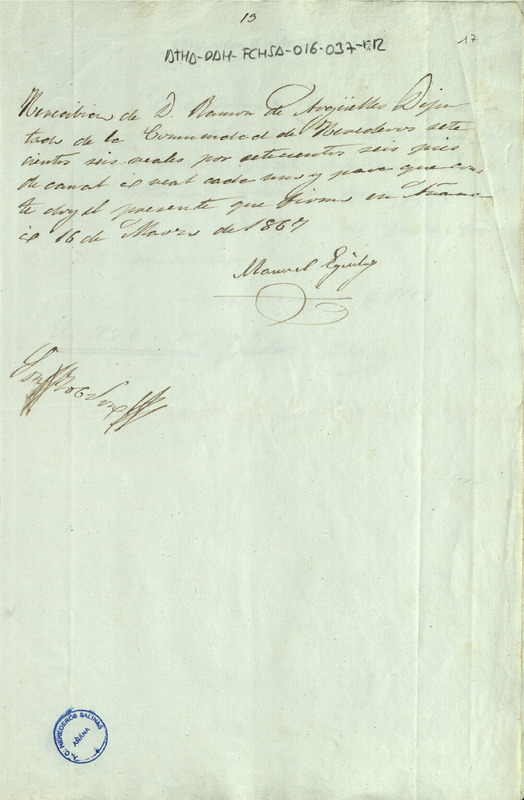 13
17
ATHA-DAH-FCHSA-016-037-
Recibi de D. Ramon de Argüelles Dipu
tado de la Comunidad de Herederos sete
cientos seis reales por setecientos seis pies
de canal á real cada uno y para que cons
te doy el presente que firmo en Añana
á 16 de Marzo de 1867
Manuel
Son 706
C. HEREDEROS SALINAS
AÑANA